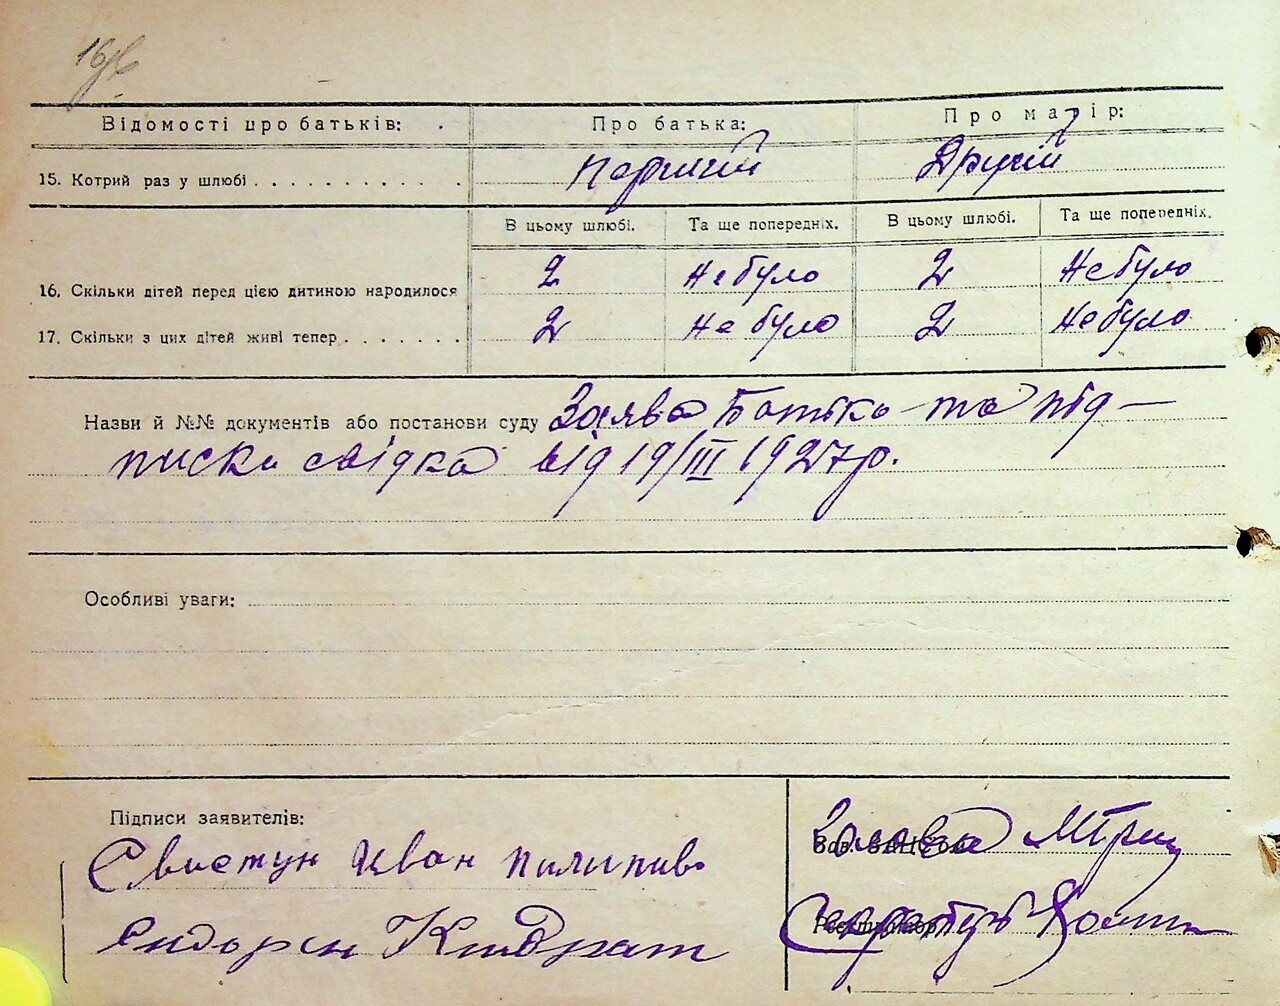 Відомості про батьків: Про батька: Про матір:
15. Котрий раз у шлюбі Перший Другій
В цьому шлюбі. Та ще попередніх. В цьому шлюбі. Та ще попередніх.
16. Скільки дітей перед цією дитиною народилося 2 Не було 2 Не було
17. Скільки з цих дітей живі тепер 2 Не було 2 Не було
Назви й №№ документів або постанови суду Заява Батька та під-
писка свідка від 19/III 1927 р.
Особливі уваги:
Підписи заявителів:
Свистун Иван Пилипив
Голова
Кындрат
Секретарь